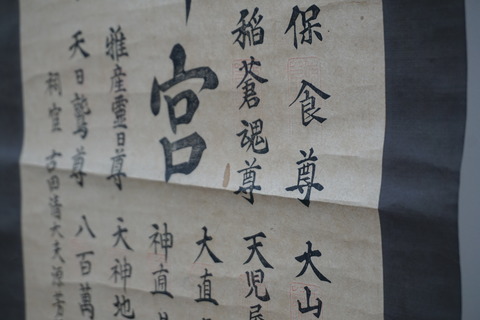 保食尊 大山
稲蒼魂尊 天児屋
大直
宮
神直
稚産霊日尊 天神地
天日鷲尊 八百萬
祠官 吉田清大夫源芳